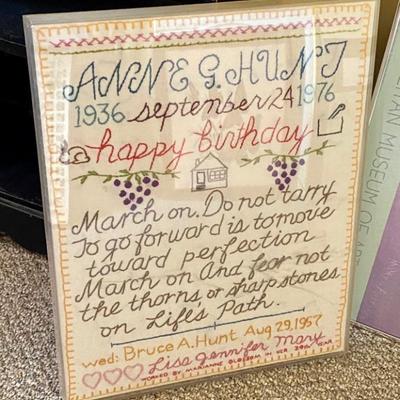 ANNE G. HUNT
1936 september 24 1976
happy birthday
March on. Do not tarry
To go forward is to move
toward perfection
March on And fear not
the thorns or sharp stones
on Life's Path.
wed: Bruce A. Hunt Aug 29, 1957
Lisa Jennifer Mary
WORKED BY MARIANNE BLOSSOM IN HER 39th YEAR
ITAN MUSEUM OF ART